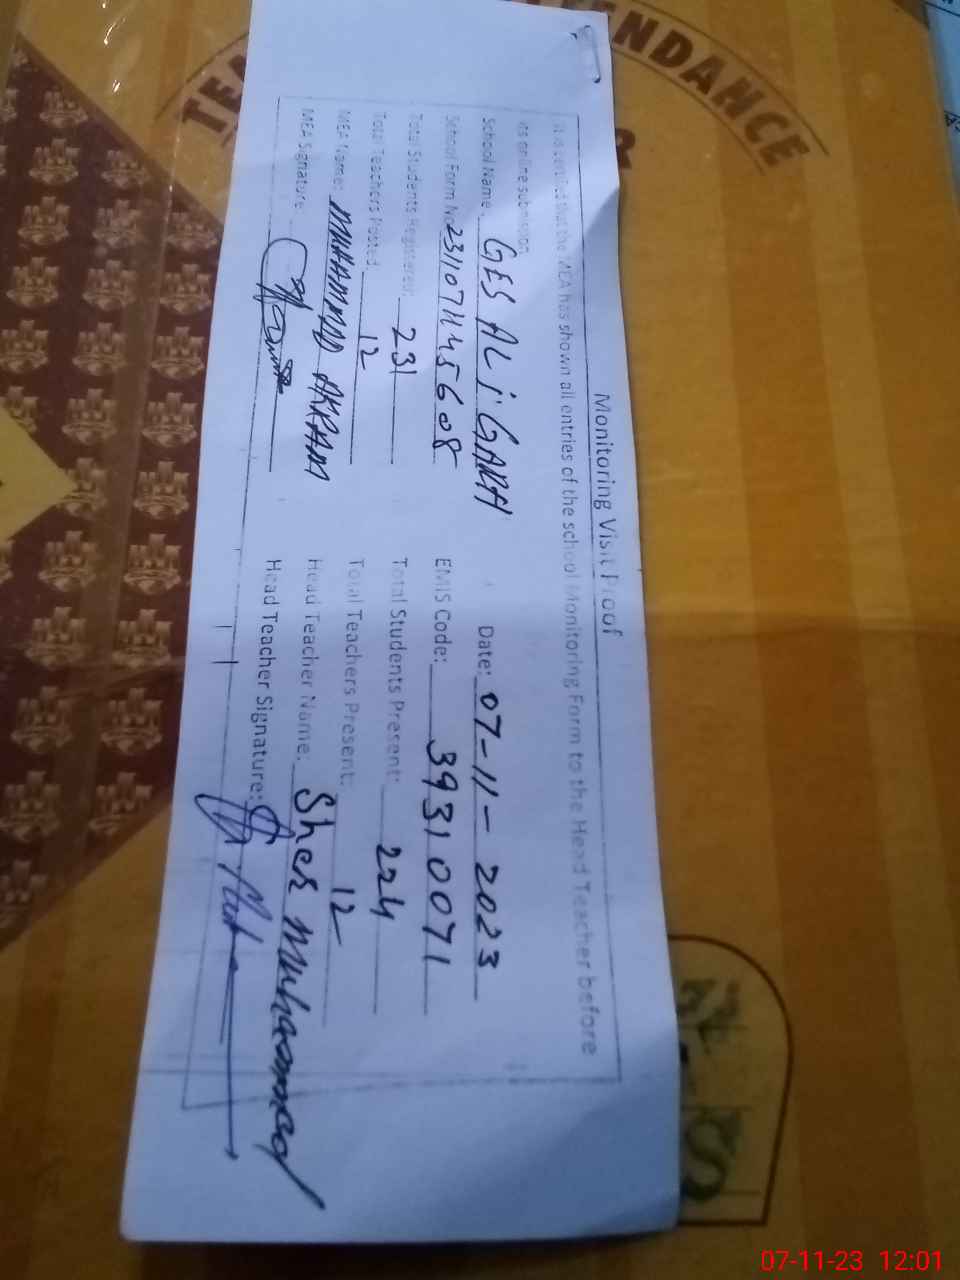 TE
ENDANCE
&
Monitoring Visit Proof
It is certified that the MEA has shown all entries of the school Monitoring Form to the Head Teacher before
its online submission
School Name: GES ALI GARH Date: 07-11-2023
School Form No 2311071145608 EMIS Code: 39310071
Total Students Registered: 231 Total Students Present: 224
Total Teachers Posted 12 Total Teachers Present: 12
MEA Name: MUHAMMAD AKRAM Head Teacher Name: Sher Muhammad
MEA Signature: Head Teacher Signature:
07-11-23 12:01